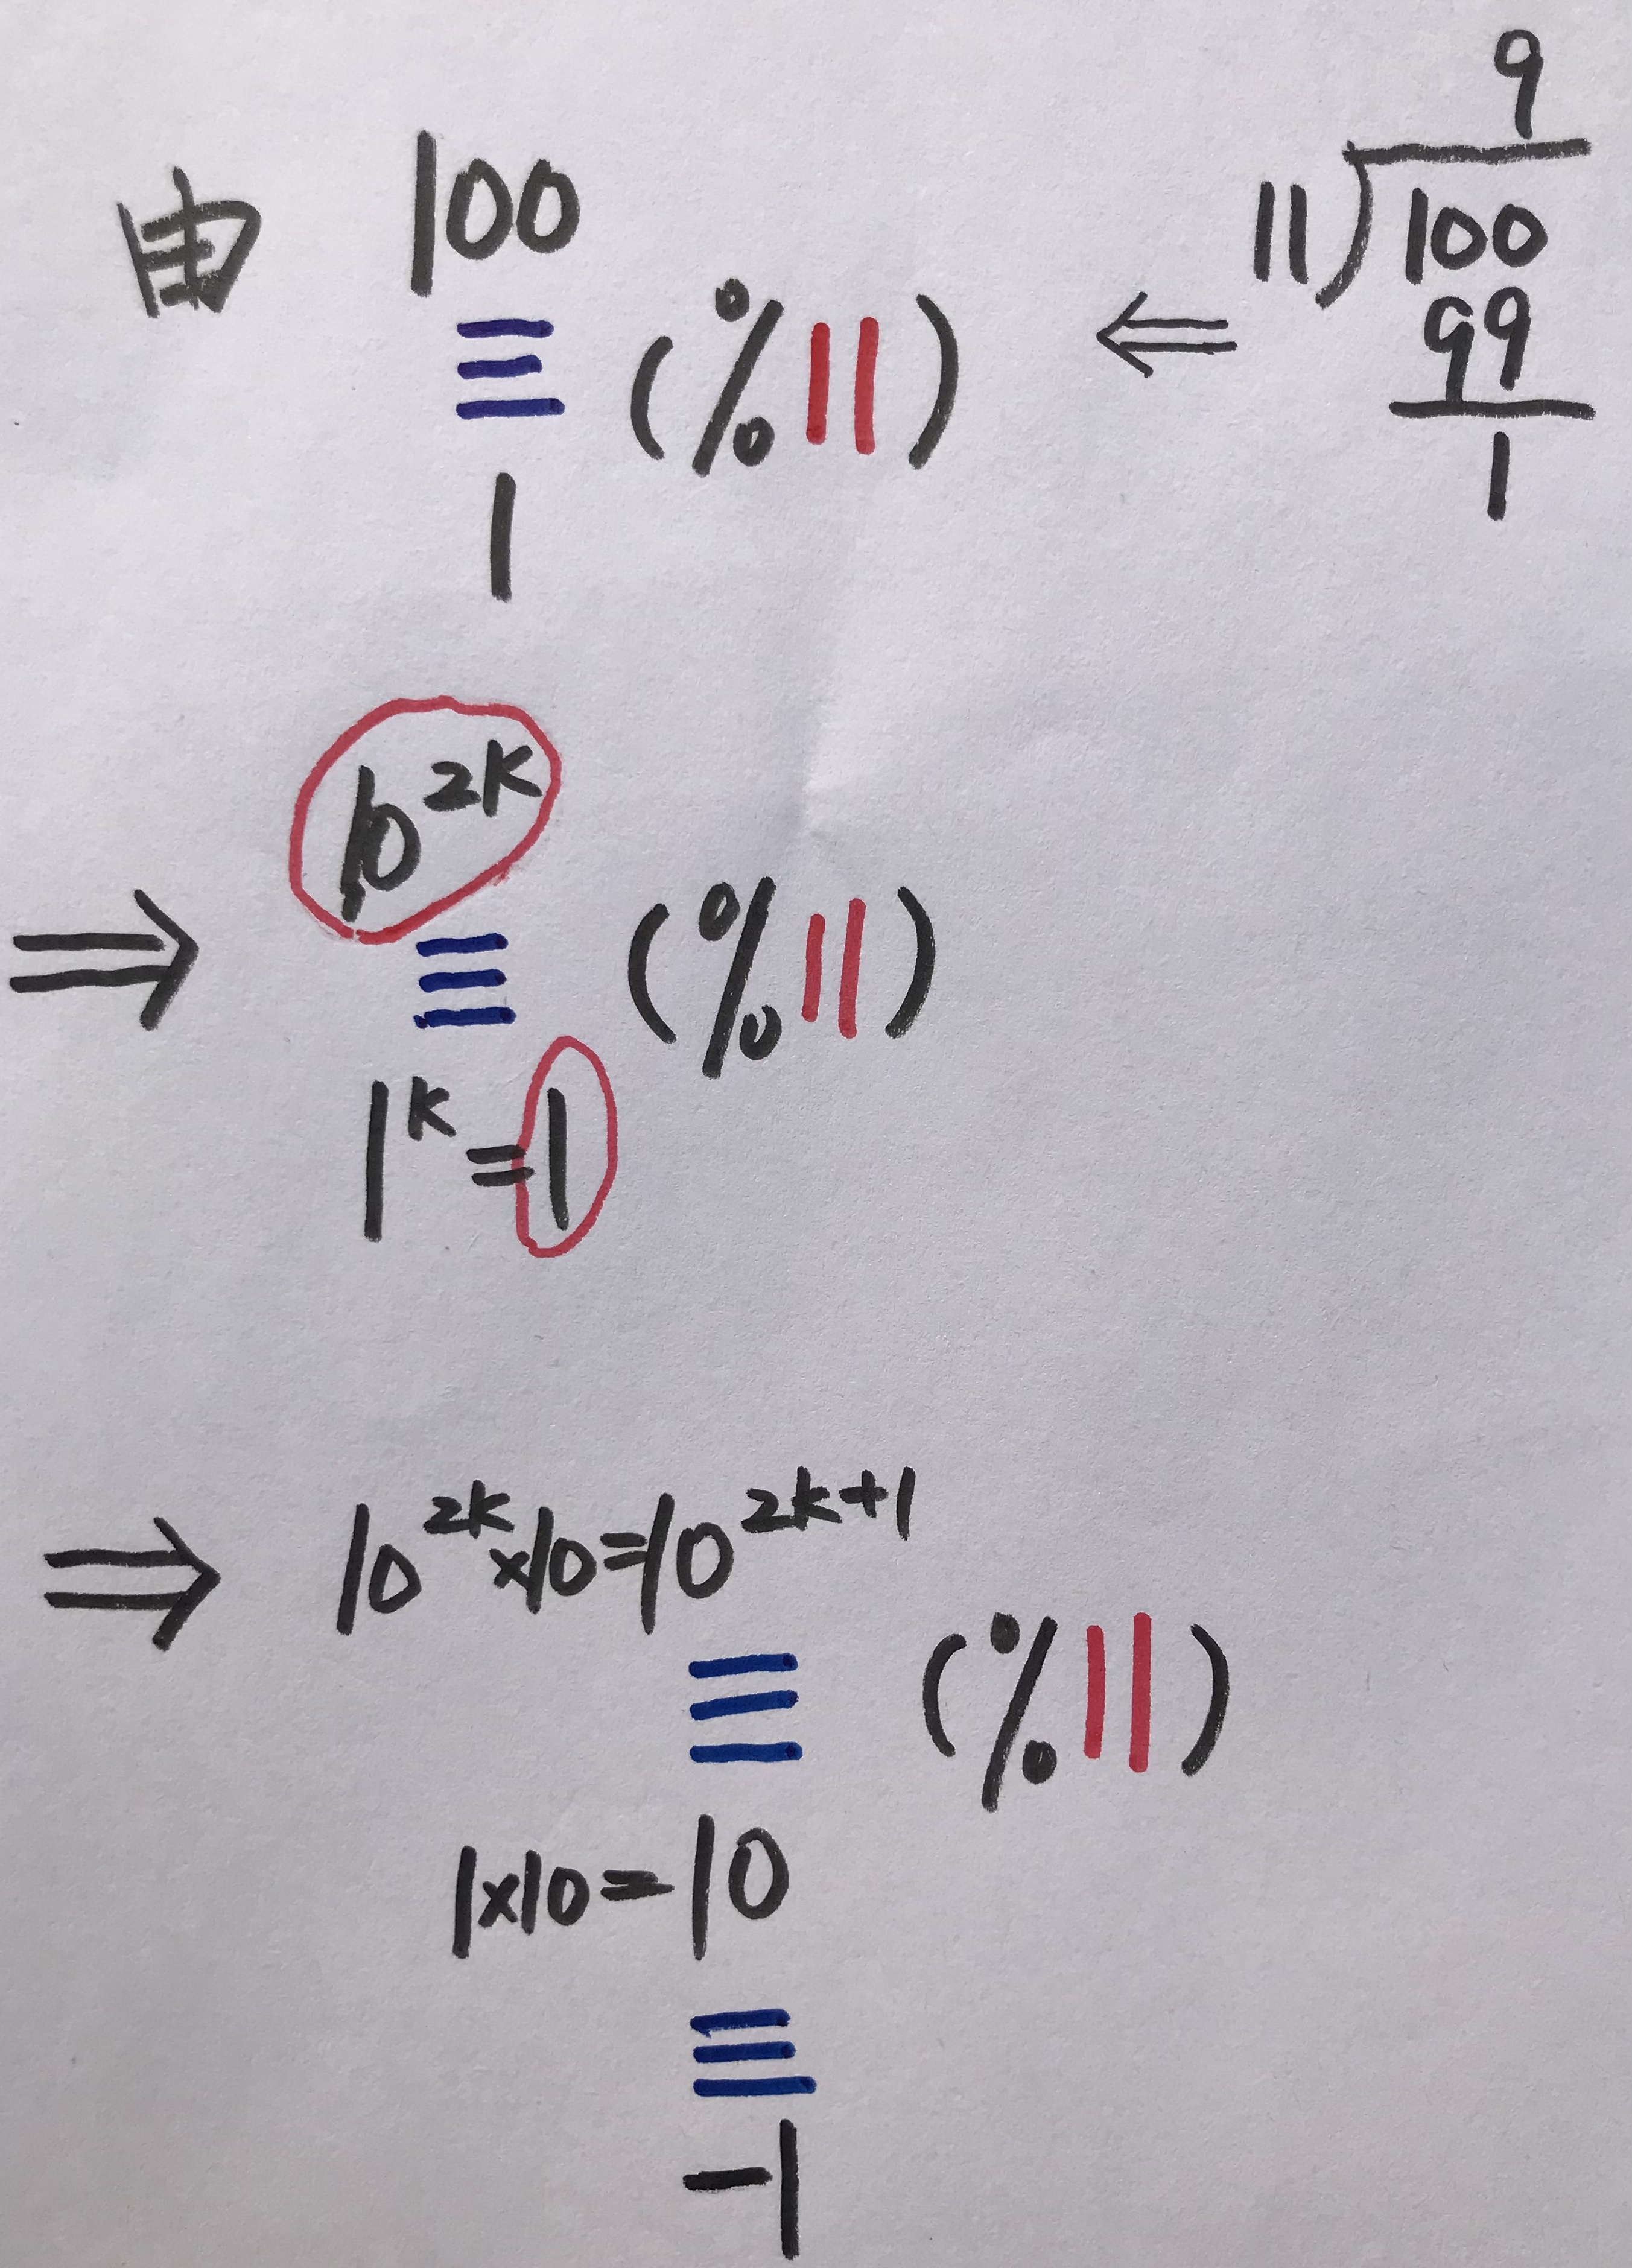 由 100
≡ (%11)
1
⇐
9
11)100
99
1
⇒ 10^{2k}
≡ (%11)
1^k=1
⇒ 10^{2k}×10=10^{2k+1}
≡ (%11)
1×10=10
≡
-1